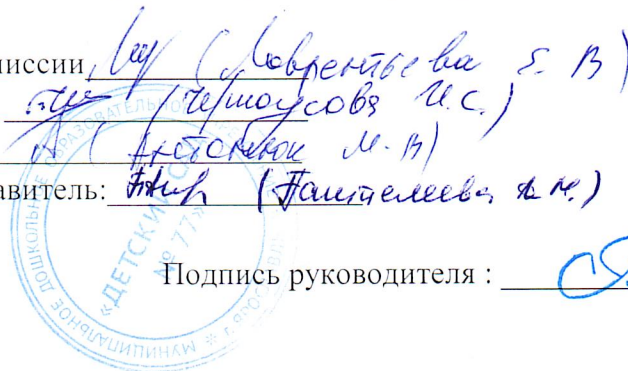 миссии (Лаврентьева Е. В)
(Черноусова И.С.)
(Антонюк М.В)
авитель: (Пантелеева А.М.)
Подпись руководителя :
МУНИЦИПАЛЬНОЕ ДОШКОЛЬНОЕ ОБРАЗОВАТЕЛЬНОЕ
«ДЕТСКИЙ
№ 77»